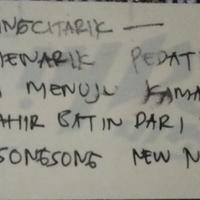 INGCITARIK —
MENARIK PEDATI
MENUJU KAMA
AHIR BATIN DARI
SONGSONG NEW N